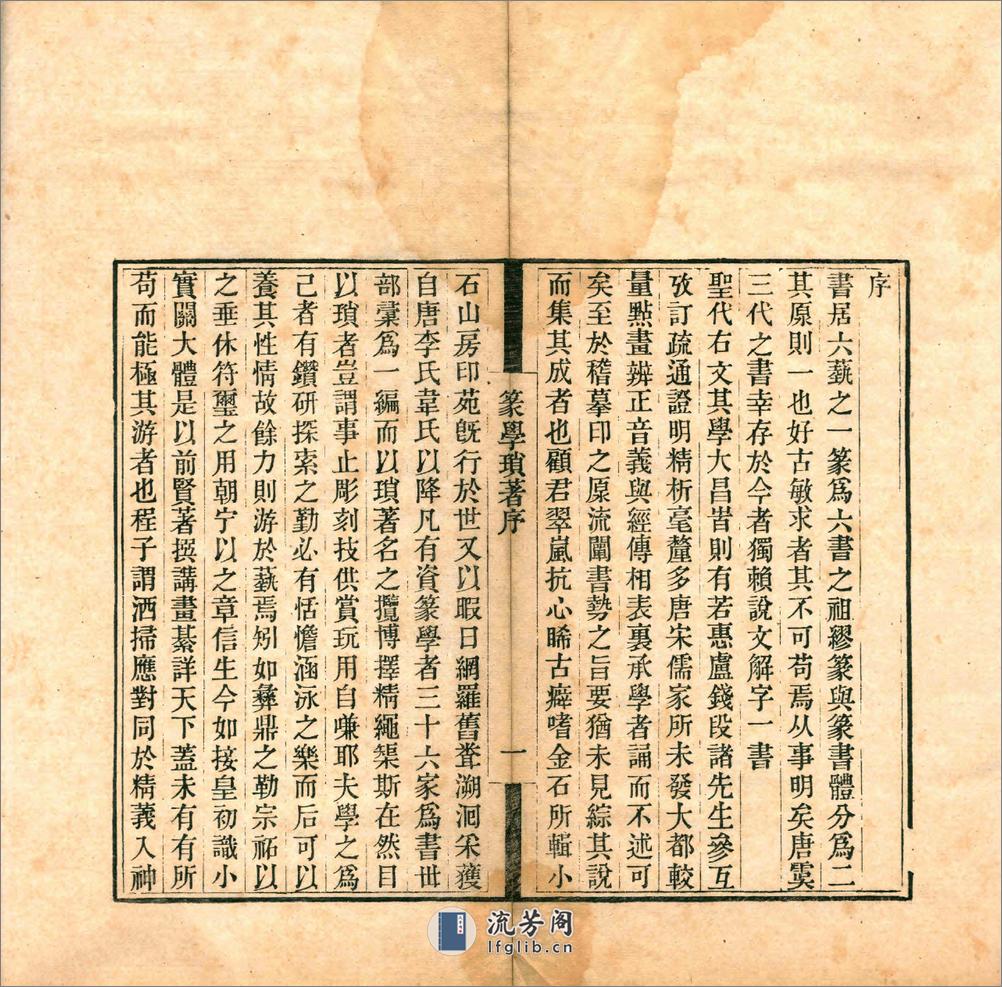 序
書居六藝之一篆爲六書之祖繆篆與篆書體分爲二
其原則一也好古敏求者其不可苟焉从事明矣唐虞
三代之書幸存於今者獨賴說文解字一書
聖代右文其學大昌昔則有若惠盧錢段諸先生參互
攷訂疏通證明精析毫釐多唐宋儒家所未發大都較
量點畫辨正音義與經傳相表裏承學者誦而不述可
矣至於稽摹印之原流闡書勢之旨要猶未見綜其說
而集其成者也顧君翠嵐抗心睎古癖嗜金石所輯小
篆學瑣著序
一
石山房印苑旣行於世又以暇日網羅舊聞溯洄采獲
自唐李氏韋氏以降凡有資篆學者三十六家爲書卌
部彙爲一編而以瑣著名之攬博擇精繩榘斯在然目
以瑣者豈謂事止彫刻技供賞玩用自嗛耶夫學之爲
己者有鑽研探索之勤必有恬憺涵泳之樂而后可以
養其性情故餘力則游於藝焉矧如彝鼎之勒宗祏以
之垂休符璽之用朝宁以之章信生今如接皇初識小
實關大體是以前賢著撰講畫綦詳天下蓋未有有所
苟而能極其游者也程子謂洒掃應對同於精義入神
流芳阁
lfglib.cn